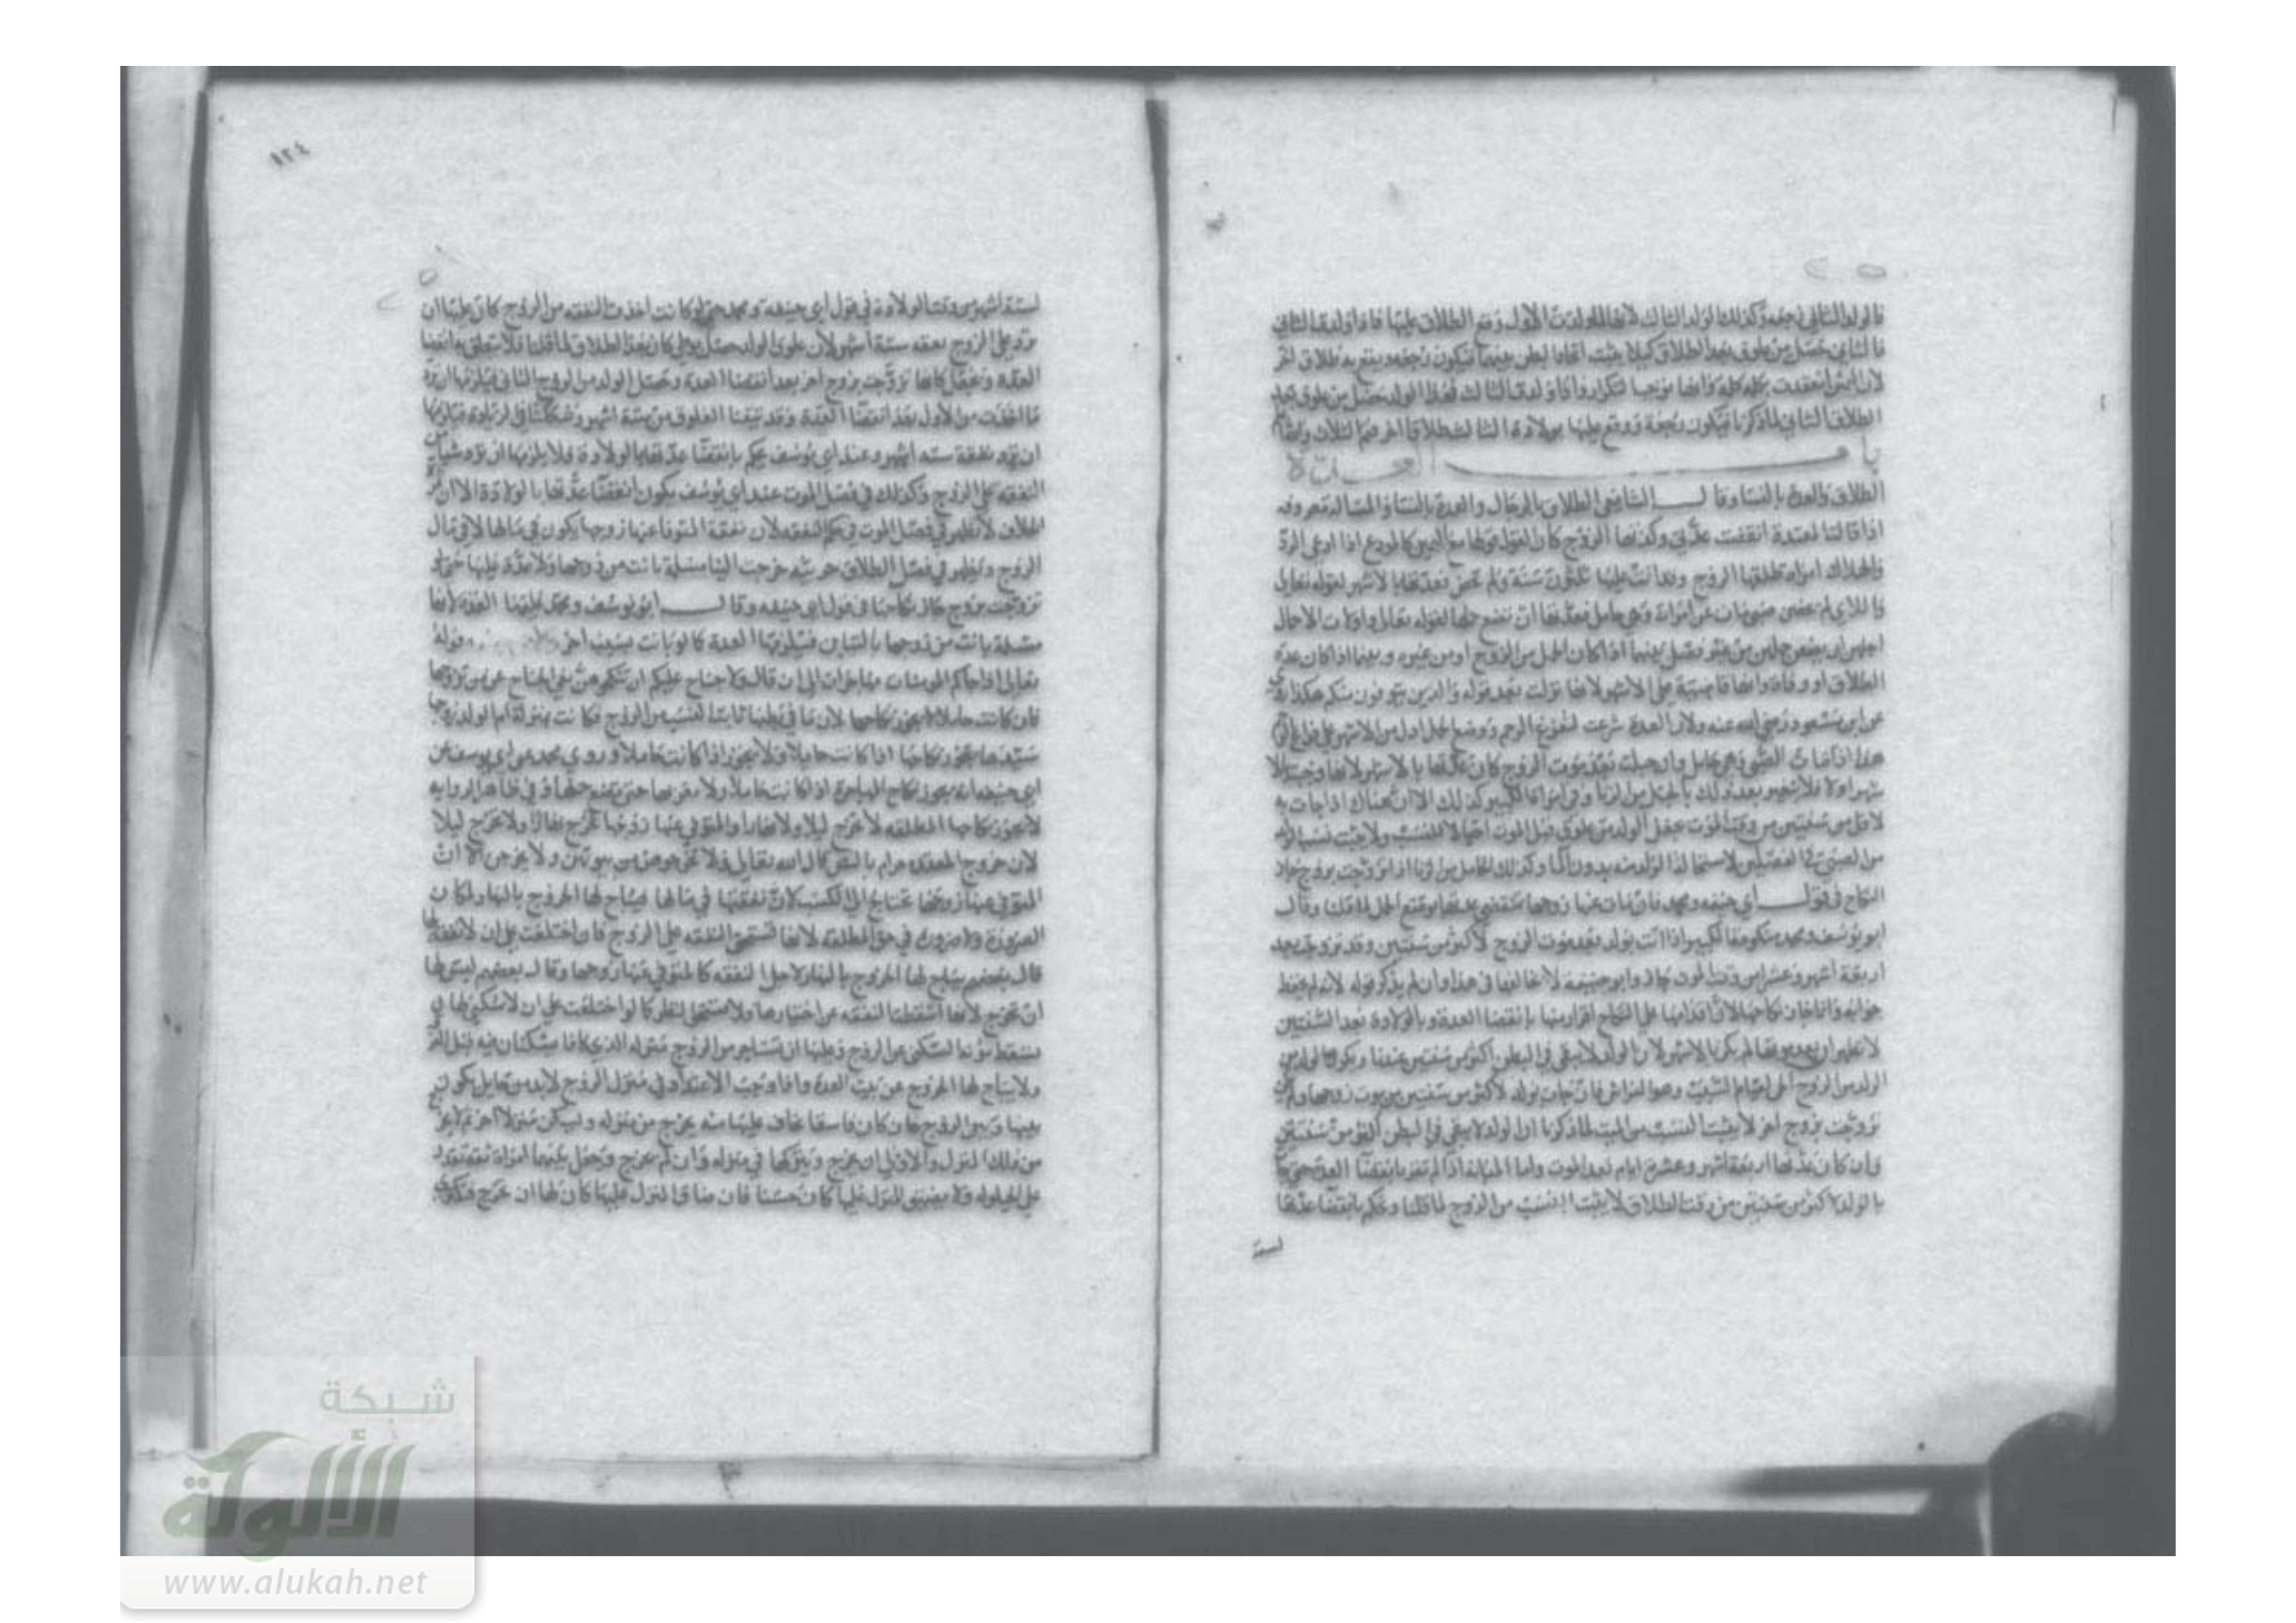 فالولد الثاني رجعه وكذلك الولد الثالث لانها لما ولدت الاول وقع الطلاق عليها فاذا ولدت الثاني
فالثاني حصل من علوق بعد الطلاق كيلا يثبت اتحاد البطن بينهما فيكون رجعه ويقع به طلاق اخر
لان اليمين انعقدت بكلمة كلما وانها موجبا للتكرار واذا ولدت الثالث فهذا الولد حصل من علوق بعد
الطلاق الثاني لما ذكرنا فيكون رجعة ووقع عليها بولادة الثالث طلاقا اخر
باب العدة
الطلاق والعدة بالنسا وقال الشافعي الطلاق بالرجال والعدة بالنسا والمسالة معروفه
اذا قالت المعتدة انقضت عدتي وكذبها الزوج كان القول قولها مع اليمين كالمودع اذا ادعى الرد
والهلاك امراة طلقها الزوج وقد اتت عليها ثلثون سنة ولم تحض فعدتها بالاشهر لقوله تعالى
واللاي لم يحضن صبي مات عن امراة وهي حامل فعدتها ان تضع حملها لقوله تعالى واولات الاحمال
اجلهن ان يضعن حملهن من غير فصل بينهما اذا كان الحمل من الزوج او من غيره وبينما اذا كان عدة
الطلاق او وفاة وانها قاضية على الاشهر لانها نزلت بعد قوله والذين يتوفون منكم هكذا
عن ابن مسعود رضي الله عنه ولان العدة شرعت لتفريغ الرحم ووضع الحمل ادل من الاشهر على فراغ
هذا اذا مات الصبي وهي حامل وان حبلت بعد موت الزوج كان عدتها بالاشهر لانها وجبت
شهرا ولا يتغير بعد ذلك بالحبل من الزنا وفي امراة الكبير كذلك الا ان هناك اذا جات به
لاقل من سنتين من وقت الموت يجعل الولد من علوق قبل الموت احتيالا للنسب ولا يثبت نسب الولد
من الصبي في الفصلين لاستحالة الولد منه بدون الما وكذلك الحامل من الزنا اذا تزوجت بزوج جاز
النكاح في قول ابي حنيفه ومحمد فان مات عنها زوجها تنقضي عدتها بوضع الحمل لما قلنا وقال
ابو يوسف ومحمد منكوحة الكبير اذا اتت بولد بعد موت الزوج لاكثر من سنتين وقد تزوجت بعد
اربعة اشهر وعشرا من وقت الموت جاز وابو حنيفة لا يخالفها في هذا وان لم يذكر قوله لانه لم يحفظ
جوابه وانما جاز نكاحها لان اقدامها على النكاح اقرار منها بانقضا العدة وبالولادة بعد السنتين
لا يظهر ان عدتها لم تكن بالاشهر لان الولد لا يبقى في البطن اكثر من سنتين عندنا ويكون الولد من
الزوج الثاني لقيام السبب وهو الفراش فان جات بولد لاكثر من سنتين من موت زوجها ولم
تزوجت بزوج اخر لا يثبت النسب من الميت لما ذكرنا ان الولد لا يبقى في البطن اكثر من سنتين
وان كان عدتها اربعة اشهر وعشرة ايام بعد الموت واما المبانه اذا لم تقر بانقضا العدة حتى جات
بالولد لاكثر من سنتين من وقت الطلاق لا يثبت النسب من الزوج لما قلنا ويحكم بانقضا عدتها
لستة
١٢٤
لستة اشهر من وقت الولادة في قول ابي حنيفه ومحمد حتى لو كانت اخذت النفقه من الزوج كان عليها ان
ترد على الزوج نفقه ستة اشهر لان علوق الولد حصل بوطي كان بعد الطلاق لما قلنا فلا تتعلق به انقضا
العدة ويجعل كانها تزوجت بزوج اخر بعد انقضا العدة وحصل الولد من الزوج الثاني فيلزمها ان ترد
ما اخذت من الاول بعد انقضا العدة وقد تيقنا العلوق من ستة اشهر وشككنا في الزيادة فيلزمها
ان ترد نفقة سته اشهر وعند ابي يوسف يحكم بانقضا عدتها بالولادة ولا يلزمها ان ترد شيا من
النفقه على الزوج وكذلك في فصل الموت عند ابي يوسف يكون انقضا عدتها بالولادة الا ان
الخلاف لا يظهر في فصل الموت في حكم النفقه لان نفقة المتوفا عنها زوجها يكون في مالها لا في مال
الزوج ويظهر في فصل الطلاق حربيه خرجت الينا مسلمة بانت من زوجها ولا عدة عليها حتى لو
تزوجت بزوج جاز نكاحها في قول ابي حنيفه وقال ابو يوسف ومحمد عليها العدة لانها
مسلمة بانت من زوجها بالتباين فيلزمها العدة كما لو بانت بسبب اخر قوله
تعالى اذا جاكم المومنات مهاجرات الى ان قال ولا جناح عليكم ان تنكحوهن نفي الجناح عمن تزوجها
فان كانت حاملا لا يجوز نكاحها لان ما في بطنها ثابت النسب من الزوج فكانت بمنزلة ام الولد زوجها
سيدها يجوز نكاحها اذا كانت حايلا ولا يجوز اذا كانت حاملا وروي محمد عن ابي يوسف عن
ابي حنيفه انه يجوز نكاح المهاجرة اذا كانت حاملا ولا يقربها حتى تضع حملها وفي ظاهر الروايه
لا يجوز نكاحها المطلقه لا تخرج ليلا ولا نهارا والمتوفى عنها زوجها تخرج نهارا ولا تخرج ليلا
لان خروج المعتدة حرام بالنص قال الله تعالى ولا تخرجوهن من بيوتهن ولا يخرجن الا ان
المتوفى عنها زوجها تحتاج الى الكسب لان نفقتها في مالها فيباح لها الخروج بالنهار لمكان
الضرورة ولا ضرورة في حق المطلقه لانها تستحق النفقه على الزوج فان اختلعت على ان لا نفقة لها
قال بعضهم يباح لها الخروج بالنهار لاجل النفقه كالمتوفى عنها زوجها وقال بعضهم ليس لها
ان تخرج لانها اسقطت النفقه عن اختيارها ولا تستحق النظر كما لو اختلعت على ان لا سكنى لها
تسقط مونة السكنى عن الزوج وعليها ان تستاجر من الزوج منزله الذي كانا يسكنان فيه قبل
ولا يباح لها الخروج عن بيت العدة واذا وجبت الاعتداد في منزل الزوج لا بد من حايل يكون
بينها وبين الزوج فان كان فاسقا يخاف عليها منه يخرج من منزله وليسكن منزلا اخر
من ذلك المنزل والاولى ان يخرج ويتركها في منزله وان لم يخرج وتجعل بينهما امراة ثقة تقدر
على الحيلوله ولا يضيق المنزل عليها كان حسنا فان ضاق المنزل عليها كان لها ان تخرج فتكون
شبكة
الألوكة
www.alukah.net